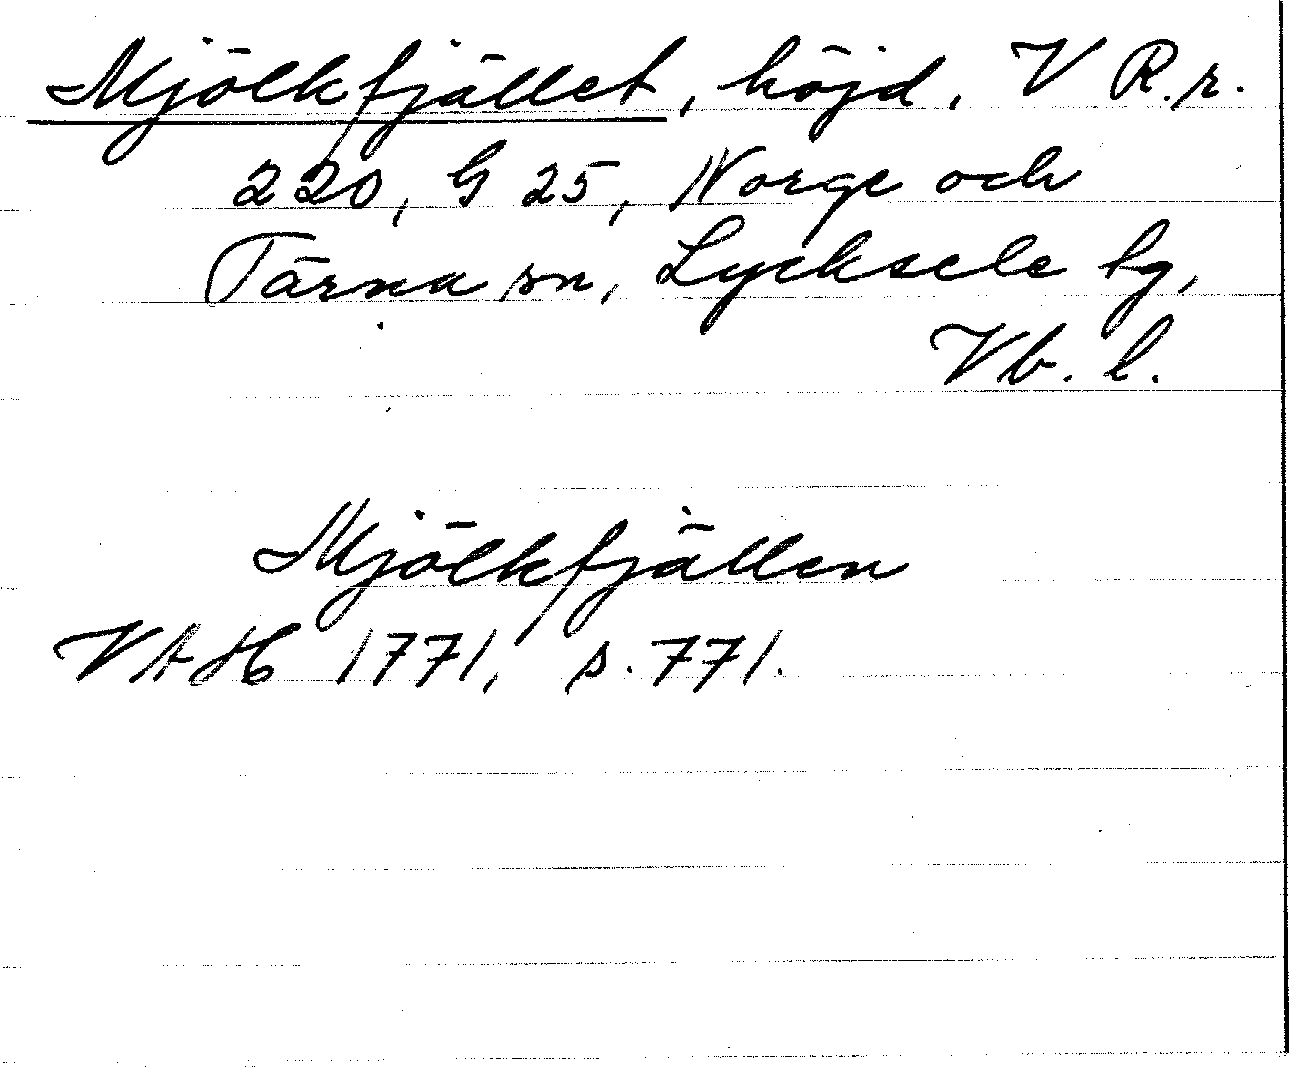 Mjölkfjället, höjd, V R.r.
220, G 25, Norge och
Tärna sn, Lycksele lg,
Vb. l.
Mjölkfjällen
VAH 1771, s. 771.